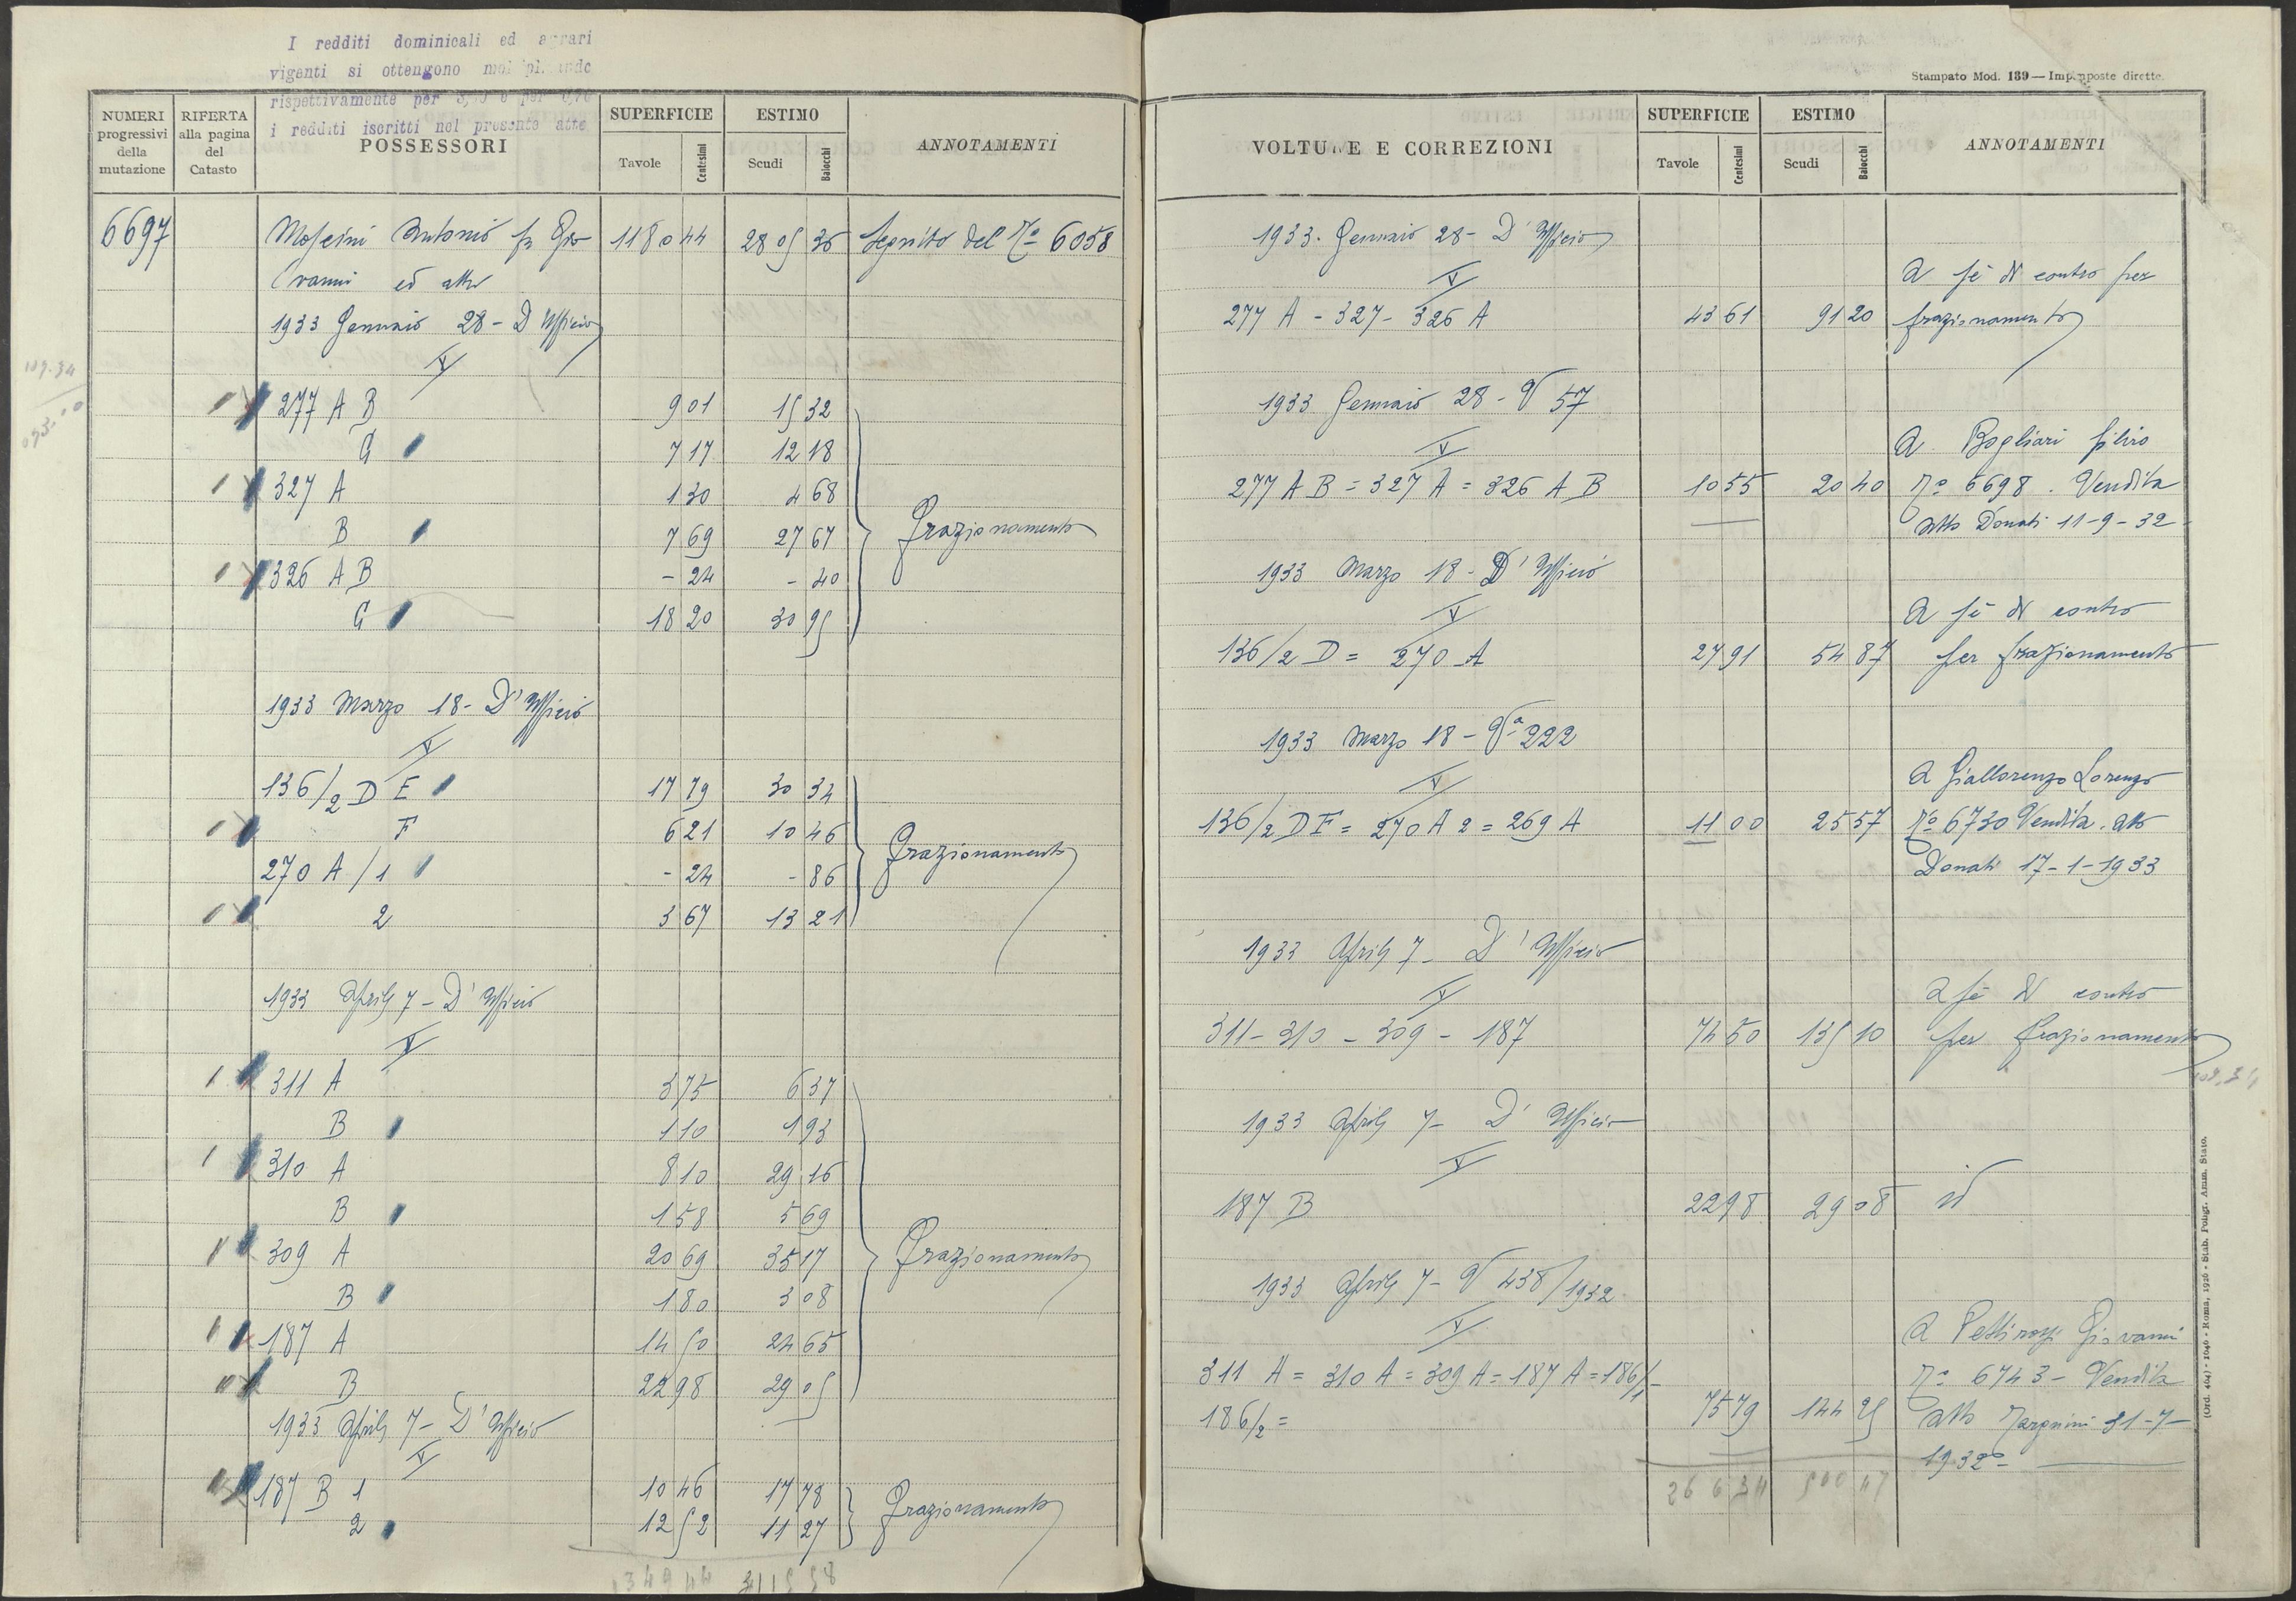 I redditi dominicali ed agrari
vigenti si ottengono
rispettivamente per
i redditi iscritti nel presente atto
NUMERI progressivi della mutazione
RIFERTA alla pagina del Catasto
POSSESSORI
SUPERFICIE
Tavole
Centesimi
ESTIMO
Scudi
Baiocchi
ANNOTAMENTI
6697 Antonio fu Gio 1180 44 2805 36 Seguito del Nº 6058
vanni ed altri
1933 Gennaio 28 - D'Ufficio
277 A B 9 01 15 32
C 7 17 12 18
327 A 1 30 4 68
B 7 69 27 67 Frazionamento
326 A B - 24 - 40
C 18 20 30 95
1933 Marzo 18 - D'Ufficio
136/2 D E 17 79 30 34
F 6 21 10 46
270 A/1 - 24 - 86 Frazionamento
2 3 67 13 21
1933 Aprile 7 - D'Ufficio
311 A 3 75 6 37
B 1 10 1 93
310 A 8 10 29 16
B 1 58 5 69
309 A 20 69 35 17 Frazionamento
B 1 80 3 08
187 A 14 50 24 65
B 22 98 29 05
1933 Aprile 7 - D'Ufficio
187 B 1 10 46 17 78 Frazionamento
2 12 52 11 27
Stampato Mod. 139 — Imp. imposte dirette.
VOLTURE E CORREZIONI
SUPERFICIE
Tavole
Centesimi
ESTIMO
Scudi
Baiocchi
ANNOTAMENTI
1933. Gennaio 28 - D'Ufficio
a sé di contro per
277 A - 327 - 326 A 43 61 91 20 frazionamento
1933 Gennaio 28 - V 57
a Bogliari Silvio
277 A B = 327 A = 326 A B 10 55 20 40 Nº 6698. Vendita
atto Donati 11-9-32
1933 Marzo 18 - D'Ufficio
a sé di contro
136/2 D = 270 A 27 91 54 87 per frazionamento
1933 Marzo 18 - Vª 222
a Giallorenzo Lorenzo
136/2 D F = 270 A 2 = 269 A 11 00 25 57 Nº 6730 Vendita. atto
Donati 17-1-1933
1933 Aprile 7 - D'Ufficio
a sé di contro
311 - 310 - 309 - 187 74 50 135 10 per frazionamento
1933 Aprile 7 - D'Ufficio
187 B 22 98 29 08 id
1933 Aprile 7 - V 438/1932
a Pettirossi Giovanni
311 A = 310 A = 309 A = 187 A = 186/1 - Nº 6743 - Vendita
186/2 = 75 79 144 25 atto 31-7-
1932 =
266 34 500 47
(Ord. 404) - 1046 - Roma, 1926 - Stab. Poligr. Amm. Stato.